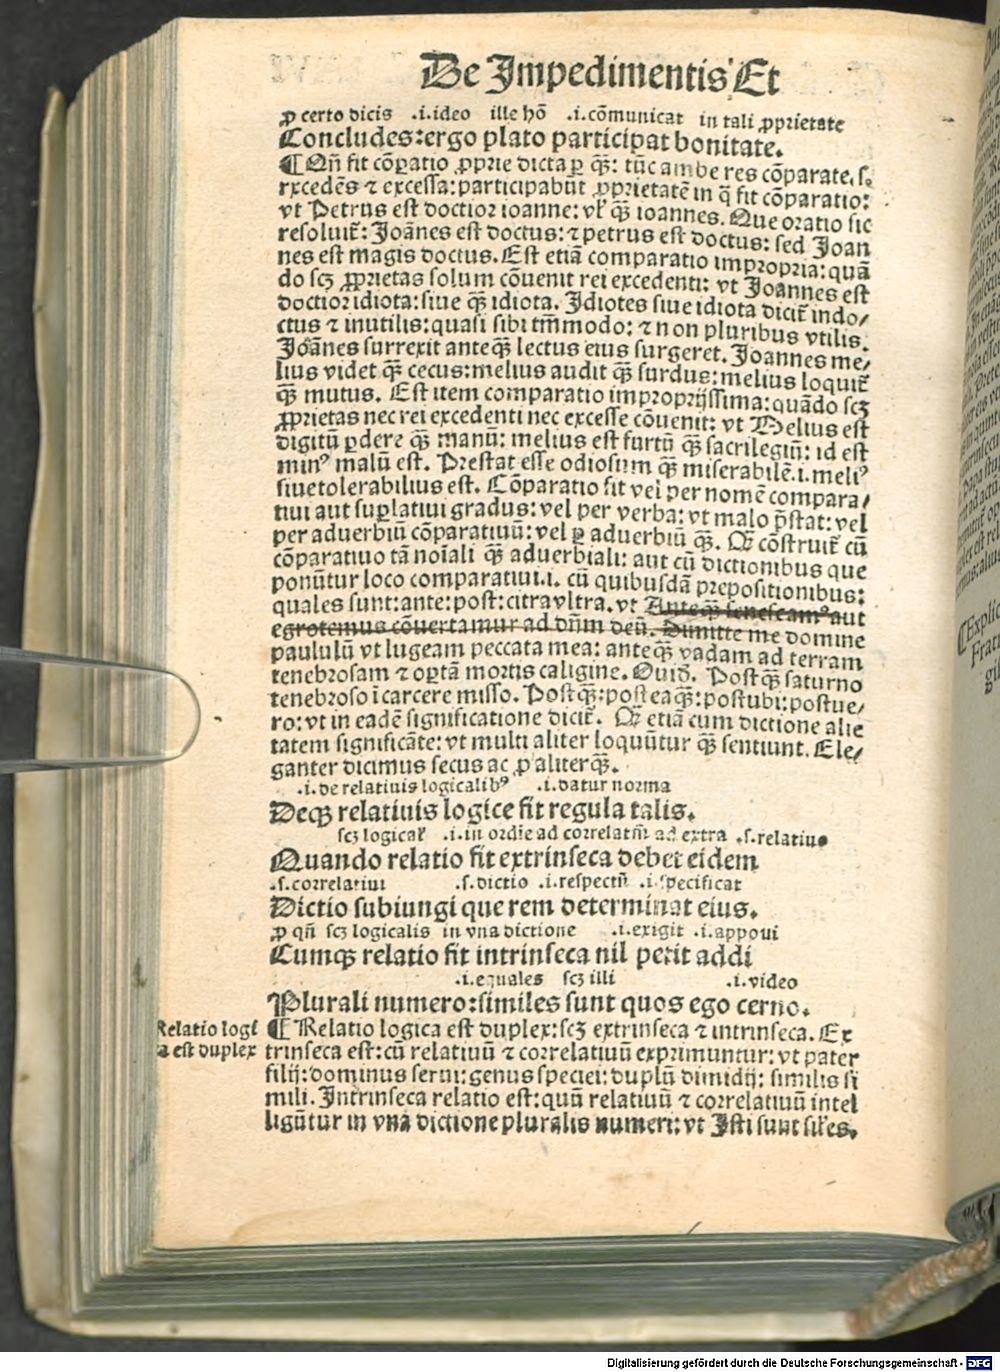 De Impedimentis Et
ꝓ certo dicis .i.ideo ille hō .i.cōmunicat in tali ꝓprietate
Concludes:ergo plato participat bonitate.
¶Qñ fit cōꝑatio ꝓprie dicta ꝑ q̄ꝫ: tūc ambe res cōparate.s.
excedēs ⁊ excessa:participabūt ꝓprietatē in q̄ fit cōparatio:
vt Petrus est doctior ioanne: vl̓ q̄ꝫ ioannes. Que oratio sic
resoluit̄: Joānes est doctus:⁊ petrus est doctus: sed Joan
nes est magis doctus. Est etiā comparatio impropria:quā
do scꝫ ꝓprietas solum cōuenit rei excedenti: vt Joannes est
doctior idiota:siue q̄ꝫ idiota. Idiotes siue idiota dicit̄ indo/
ctus ⁊ inutilis:quasi sibi tm̄modo: ⁊ non pluribus vtilis.
Joānes surrexit anteq̄ꝫ lectus eius surgeret. Joannes me/
lius videt q̄ꝫ cecus:melius audit q̄ꝫ surdus:melius loquit̄
q̄ꝫ mutus. Est item comparatio impropriissima:quādo scꝫ
ꝓprietas nec rei excedenti nec excesse cōuenit: vt Melius est
digitū ꝑdere q̄ꝫ manū: melius est furtū q̄ꝫ sacrilegiū: id est
minꝰ malū est. Prestat esse odiosum q̄ꝫ miserabilē.i.meliꝰ
siue tolerabilius est. Cōparatio fit vel per nomē compara/
tiui aut suꝑlatiui gradus: vel per verba: vt malo p̄stat: vel
per aduerbiū cōparatiuū: vel ꝑ aduerbiū q̄ꝫ. Qꝛ cōstruit̄ cū
cōparatiuo tā noīali q̄ꝫ aduerbiali: aut cū dictionibus que
ponūtur loco comparatiui.i. cū quibusdā prepositionibus:
quales sunt:ante:post:citra vltra. vt Anteq̄ꝫ senescamꝰ aut
egrotemus cōuertamur ad dñm deū. Dimitte me domine
paululū vt lugeam peccata mea: anteq̄ꝫ vadam ad terram
tenebrosam ⁊ optā mortis caligine. Ouid. Postq̄ꝫ saturno
tenebroso ī carcere misso. Postq̄ꝫ:post ea q̄ꝫ:postubi:postue/
ro: vt in eadē significatione dicit̄. Qꝛ etiā cum dictione alie
tatem significāte: vt multi aliter loquūtur q̄ꝫ sentiunt. Ele/
ganter dicimus secus ac ꝓ aliter q̄ꝫ.
.i.de relatiuis logicalibꝰ .i.datur norma
Deqꝫ relatiuis logice fit regula talis.
scꝫ logical̓ .i.in ordīe ad correlatm̄ ad extra .s.relatiuo
Quando relatio fit extrinseca debet eidem
.s.correlatiui .s.dictio .i.respectū .i.specificat
Dictio subiungi que rem determinat eius.
ꝓ qñ scꝫ logicalis in vna dictione .i.exigit .i.apponi
Cumqꝫ relatio fit intrinseca nil petit addi
.i.equales scꝫ illi .i.video
Plurali numero:similes sunt quos ego cerno.
Relatio logi
a est duplex
¶ Relatio logica est duplex:scꝫ extrinseca ⁊ intrinseca. Ex
trinseca est:cū relatiuū ⁊ correlatiuū exprimuntur: vt pater
filij:dominus serui:genus speciei:duplū dimidij: similis si
mili. Intrinseca relatio est:quū relatiuū ⁊ correlatiuū intel
ligūtur in vna dictione pluralis numeri: vt Isti sunt sil̓es.
Digitalisierung gefördert durch die Deutsche Forschungsgemeinschaft - DFG